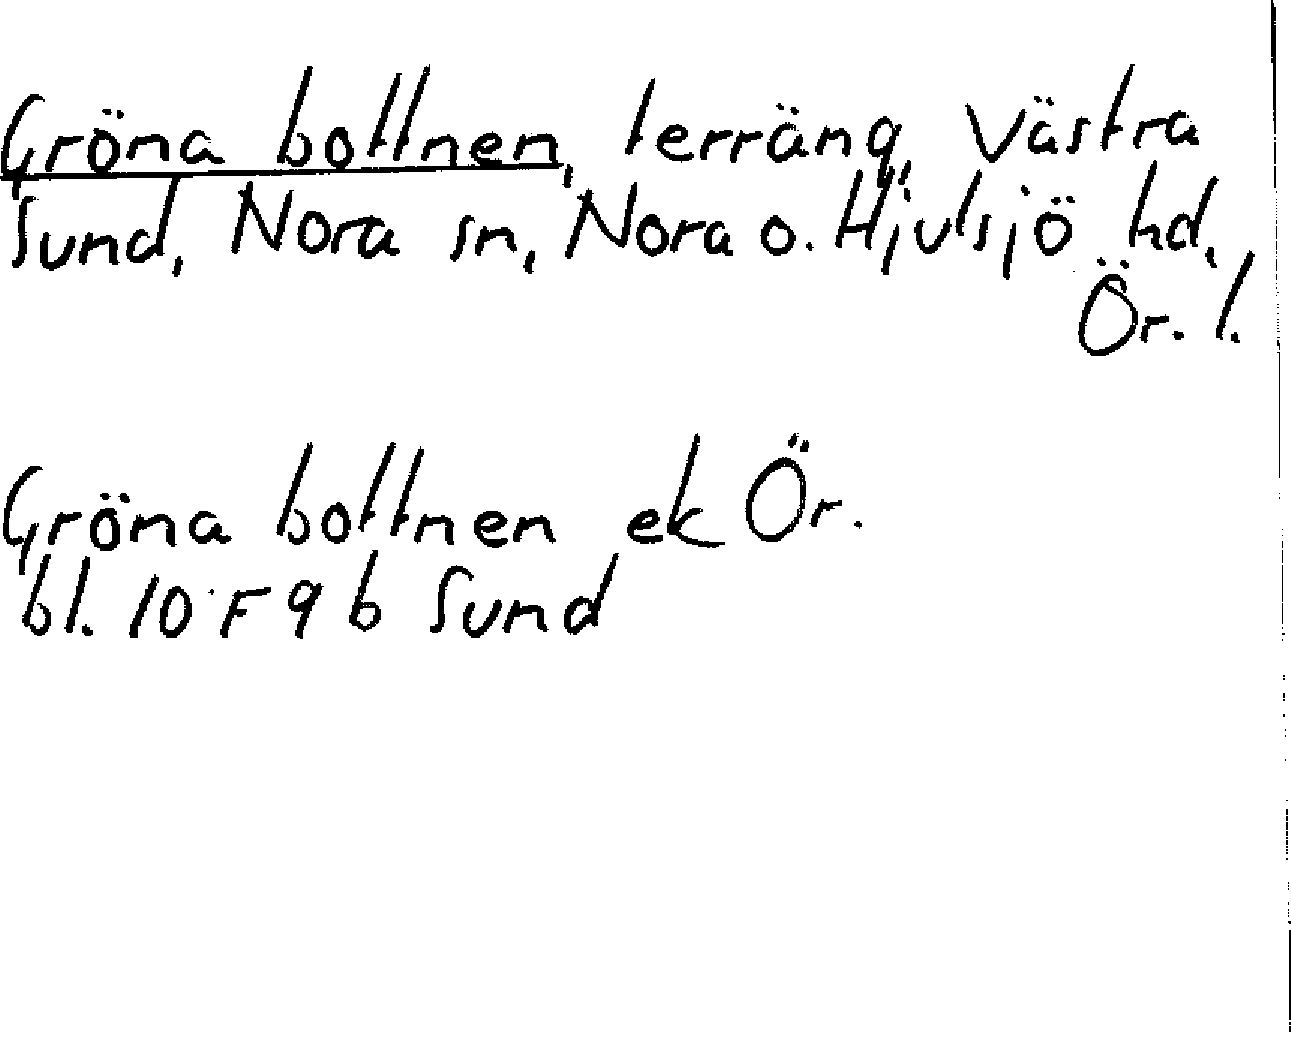 Gröna bottnen, terräng, Västra
Sund, Nora sn, Nora o. Hjulsjö hd,
Ör. l.
Gröna bottnen ek Ör.
bl. 10 F 9 b Sund